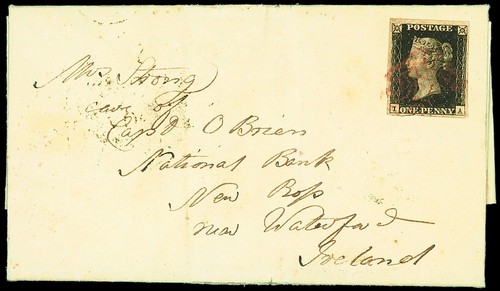 POSTAGE
ONE PENNY
I A
Mrs Strong
care of
Capt O'Brien
National Bank
New Ross
near Waterford
Ireland